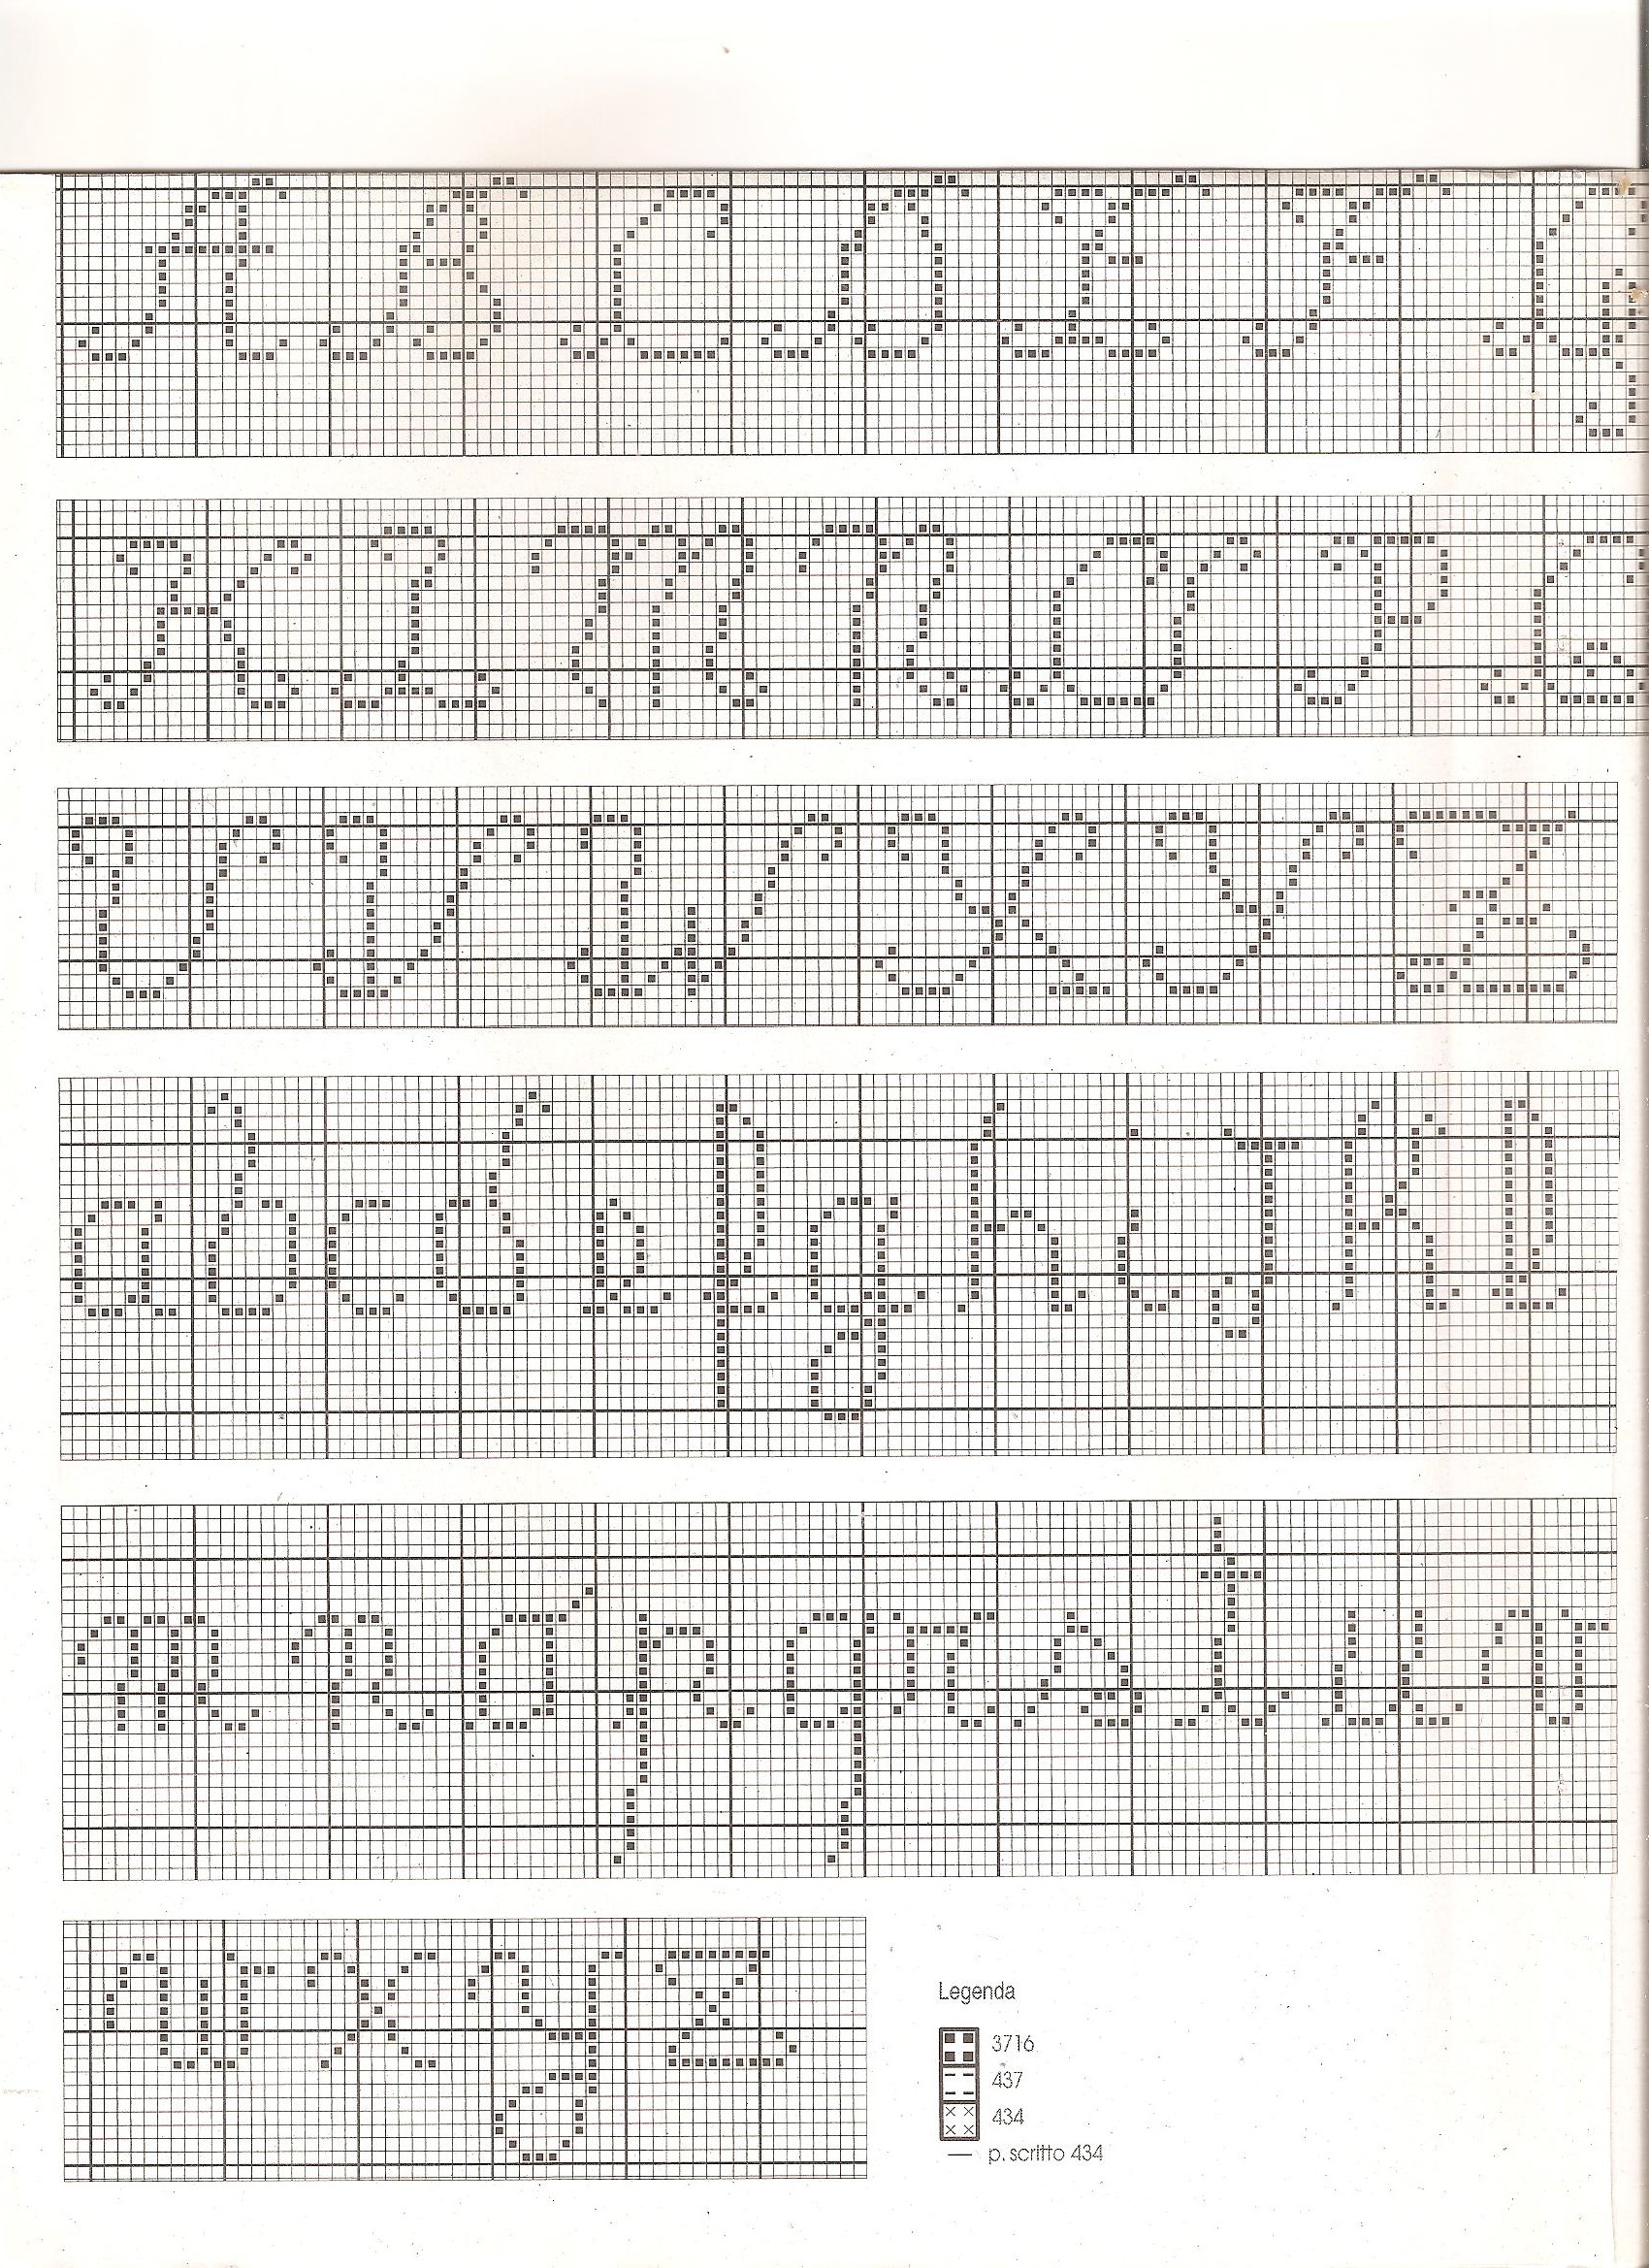 A B C D E F G
K L M N O P Q
U V W X Y Z
a b c d e f g h i j k l
m n o p q r s t u v
w x y z
Legenda
3716
437
434
p. scritto 434